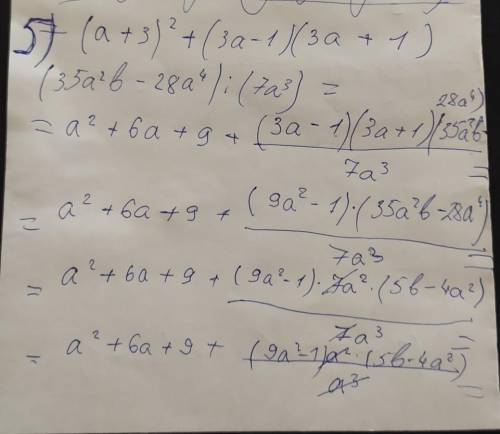 5) (a + 3)² + (3a - 1)(3a + 1)
(35a²b - 28a⁴) : (7a³) =
= a² + 6a + 9 + (3a - 1)(3a + 1)(35a²b - 28a⁴) =
7a³
= a² + 6a + 9 + (9a² - 1)·(35a²b - 28a⁴) =
7a³
= a² + 6a + 9 + (9a² - 1)·7a²·(5b - 4a²) =
7a³
= a² + 6a + 9 + (9a² - 1)a²·(5b - 4a²) =
a³